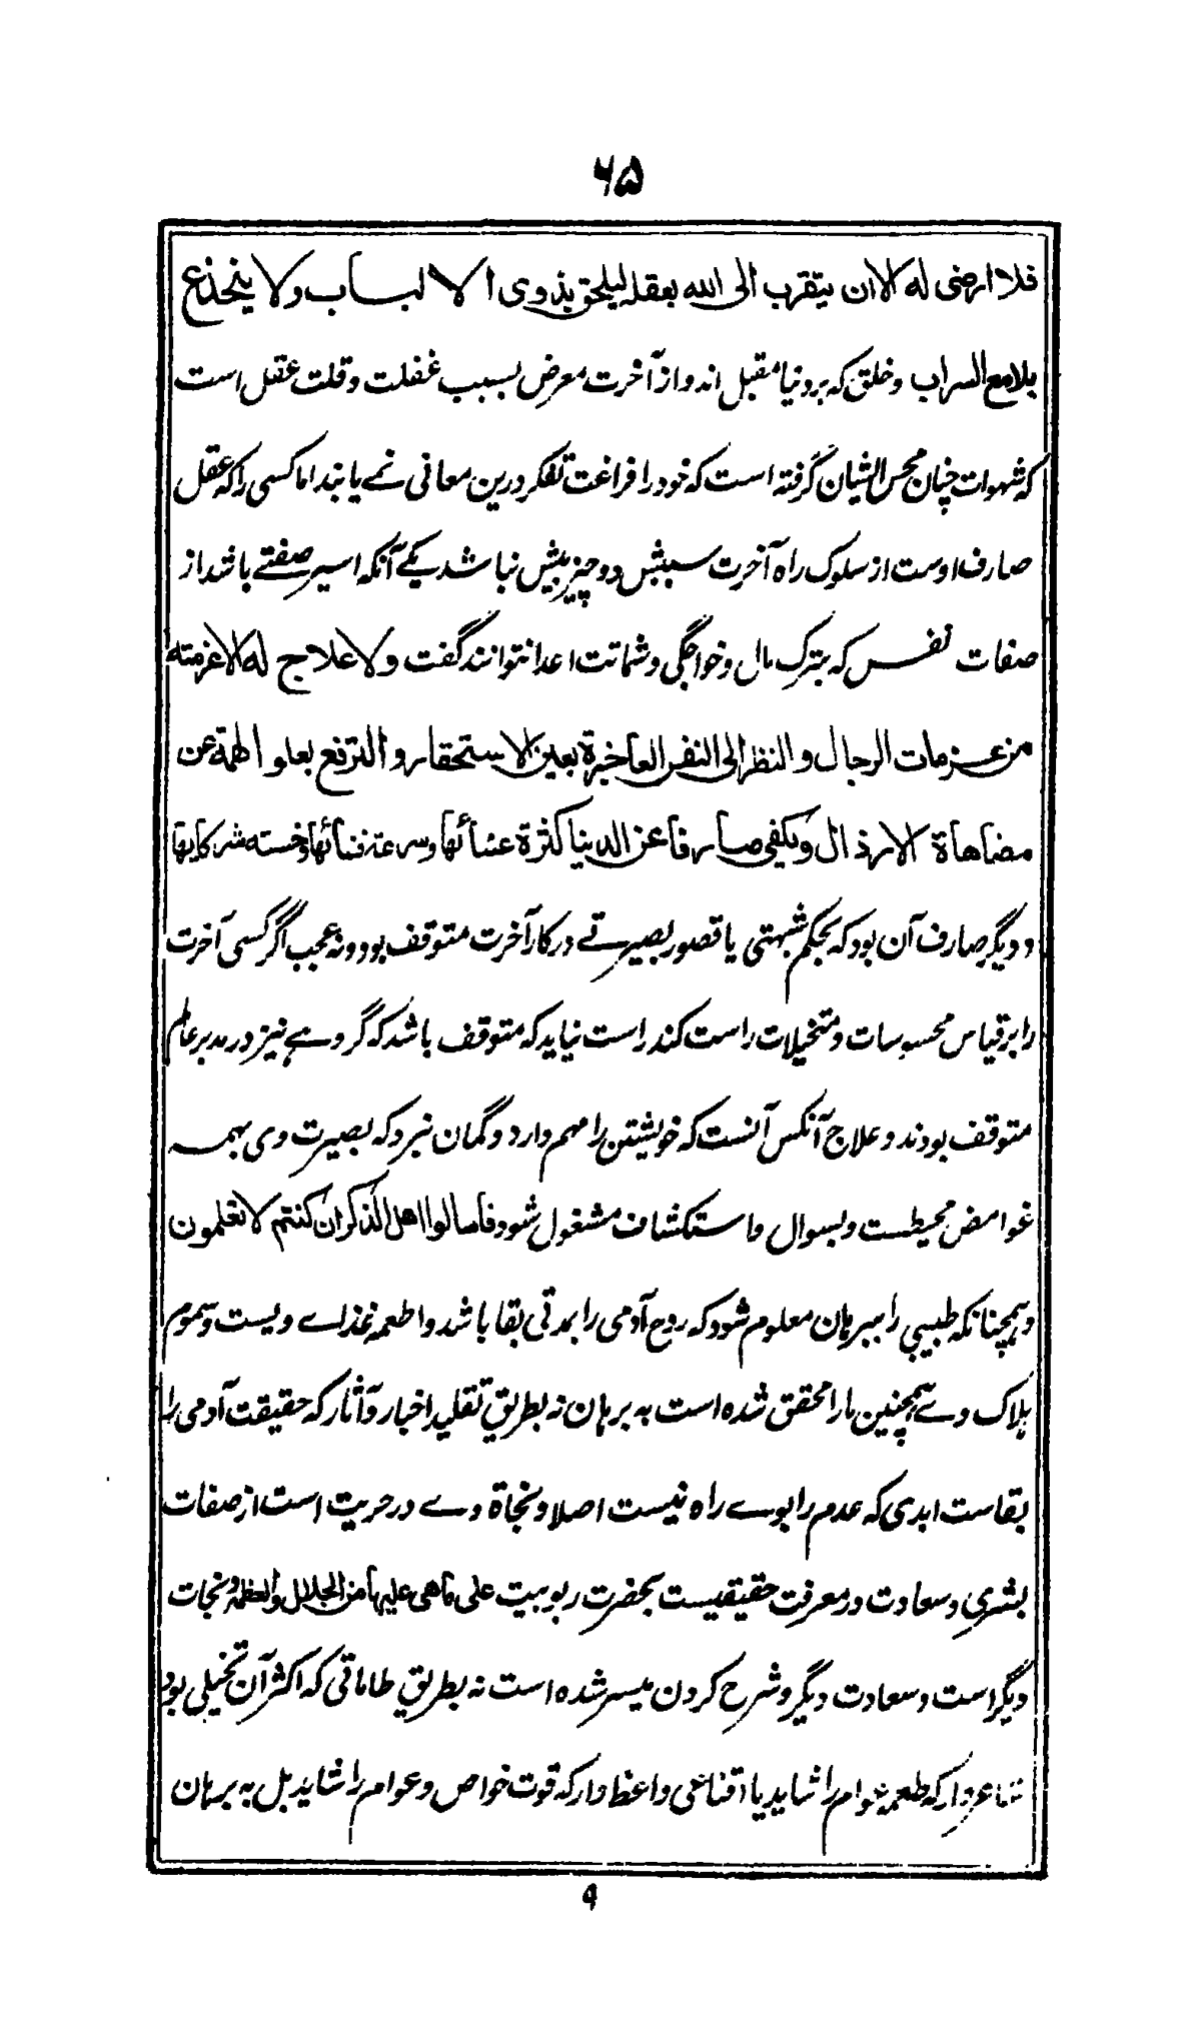 ۶۵
فلا ارضی له الا ان يتقرب الی الله بعقله ليلحق بذوی الالباب ولا ينخدع
بلامع السراب وخلق که بر دنیا مقبل اند و از آخرت معرض بسبب غفلت و قلت عقل است
که شهوات چنان محس ایشان گرفته است که خود را فراغت تفکر درین معانی نمے یابند اما کسی را که عقل
صارف اوست از سلوک راه آخرت سببش دو چیز بیش نباشد یکے آنکه اسیر صفتے باشد از
صفات نفس که بترک مال و خواجگی و شماتت اعدا نتوانند گفت ولا علاج له الا عزمته
من عزمات الرجال والنظر الی النفس العاخرة بعین الاستحقار والترفع بعلو الهمة عن
مضاهاة الارذال ويكفی صارفا عن الدنیا كثرة عنائها وسرعة فنائها وخسته شركائها
و دیگر صارف آن بود که بحکم شبهتی یا قصور بصیرتے در کار آخرت متوقف بود و نه عجب اگر کسی آخرت
را بر قیاس محسوسات و متخیلات راست کند راست نیاید که متوقف باشد که گروهے نیز در مدبر عالم
متوقف بودند و علاج آنکس آنست که خویشتن را مهم دارد و گمان نبرد که بصیرت وی بهمه
غوامض محیطست و بسوال و استکشاف مشغول شود فاسالوا اهل الذکر ان کنتم لا تعلمون
و همچنانکه طبیبی را ببرهان معلوم شود که روح آدمی را بمدتی بقا باشد و اطعمه غذاے ویست و سموم
هلاک وے همچنین مارا محقق شده است به برهان نه بطریق تقلید اخبار و آثار که حقیقت آدمی را
بقاست ابدی که عدم را بوے راه نیست اصلا و نجاة وے در حریت است از صفات
بشری و سعادت در معرفت حقیقیست بحضرت ربوبیت علی ما هی علیها من الجلال والعظمة و نجات
دیگر است و سعادت دیگر و شرح کردن میسر شده است نه بطریق طاماتی که اکثر آن تخیلی بود
شاعروار که طعمه عوام را شاید یا اقناعی واعظ وار که قوت خواص و عوام را شاید بل به برهان
۹